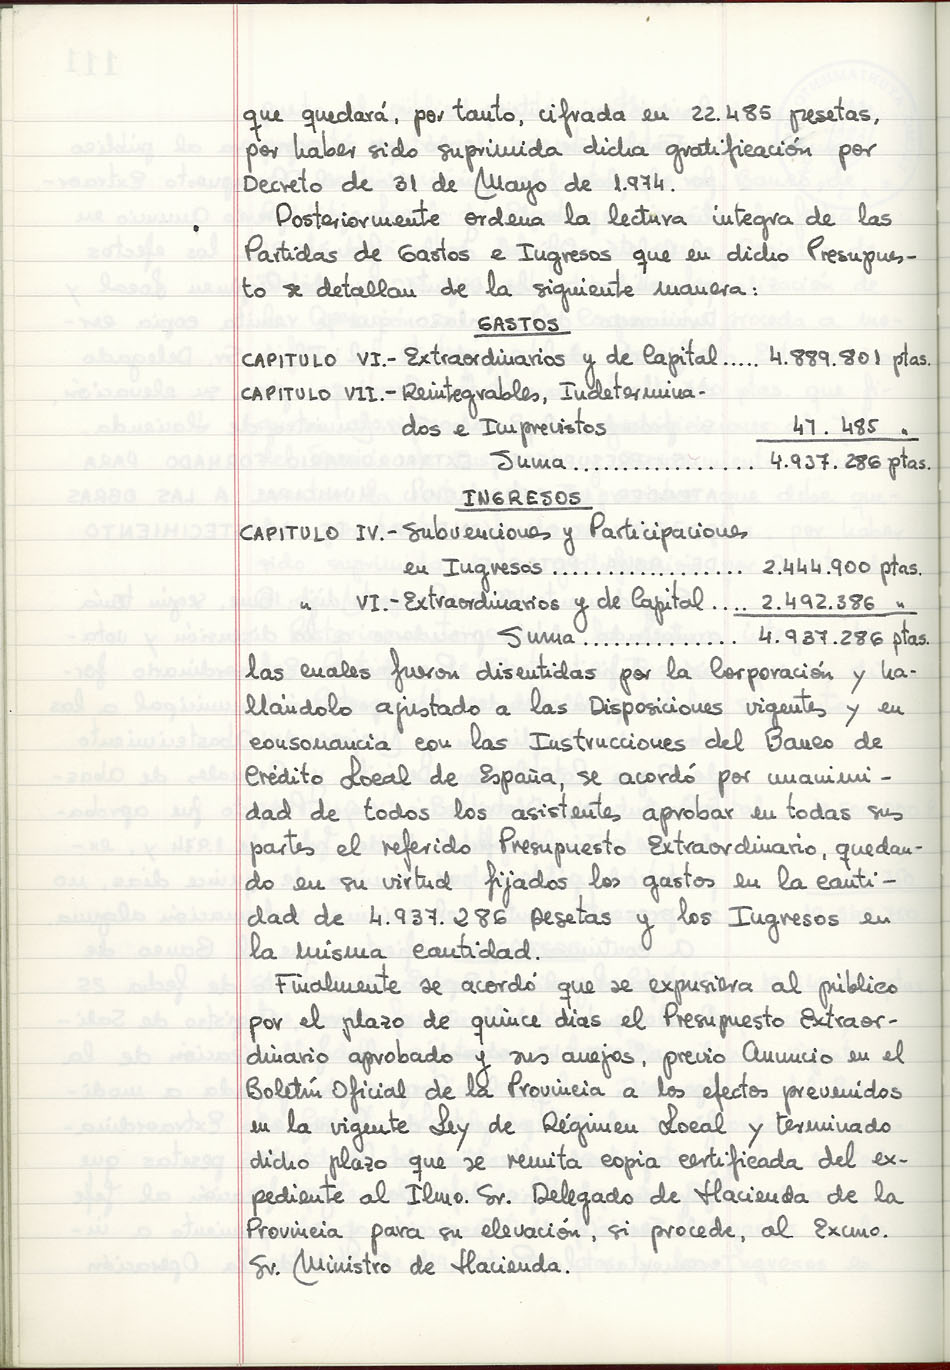 que quedará, por tanto, cifrada en 22.485 pesetas,
por haber sido suprimida dicha gratificación por
Decreto de 31 de Mayo de 1.974.
Posteriormente ordena la lectura integra de las
Partidas de Gastos e Ingresos que en dicho Presupues-
to se detallan de la siguiente manera:
GASTOS
CAPITULO VI.- Extraordinarios y de Capital ..... 4.889.801 ptas.
CAPITULO VII.- Reintegrables, Indetermina-
dos e Imprevistos 47.485 "
Suma ................ 4.937.286 ptas.
INGRESOS
CAPITULO IV.- Subvenciones y Participaciones
en Ingresos .................. 2.444.900 ptas.
" VI.- Extraordinarios y de Capital .... 2.492.386 "
Suma ............. 4.937.286 ptas.
las cuales fueron discutidas por la Corporación y ha-
llándolo ajustado a las Disposiciones vigentes y en
consonancia con las Instrucciones del Banco de
Crédito Local de España, se acordó por unanimi-
dad de todos los asistentes aprobar en todas sus
partes el referido Presupuesto Extraordinario, quedan-
do en su virtud fijados los gastos en la canti-
dad de 4.937.286 pesetas y los Ingresos en
la misma cantidad.
Finalmente se acordó que se expusiera al público
por el plazo de quince dias el Presupuesto Extraor-
dinario aprobado y sus anejos, previo Anuncio en el
Boletín Oficial de la Provincia a los efectos prevenidos
en la vigente Ley de Régimen Local y terminado
dicho plazo que se remita copia certificada del ex-
pediente al Ilmo. Sr. Delegado de Hacienda de la
Provincia para su elevación, si procede, al Excmo.
Sr. Ministro de Hacienda.